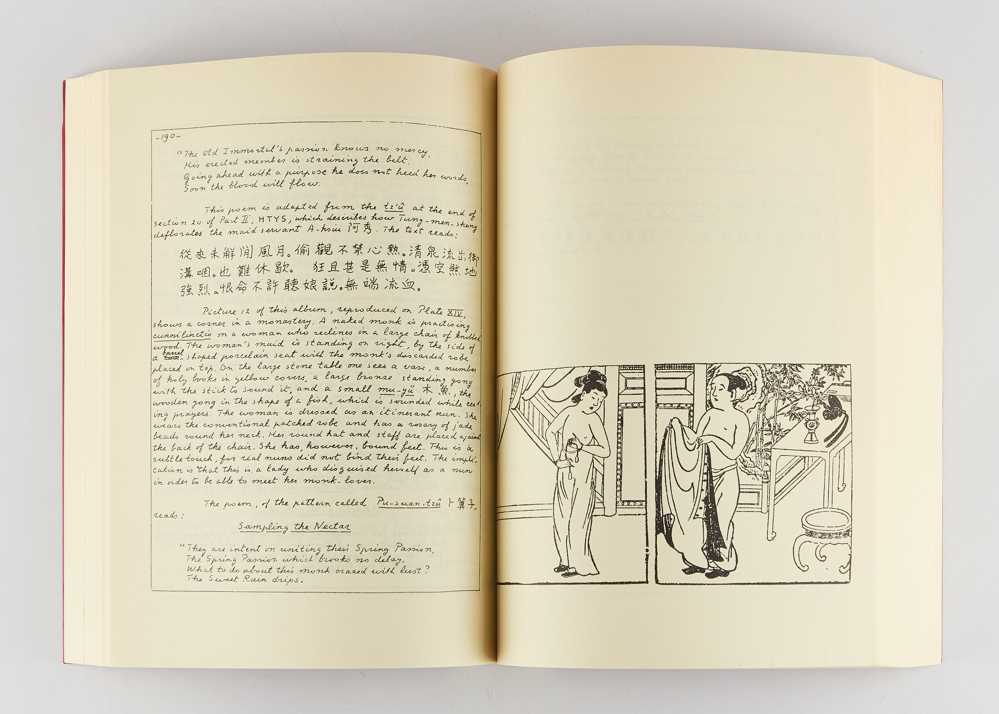 -190-
"The old Immortal's passion knows no mercy.
His erected member is straining the belt.
Going ahead with a purpose he does not heed her words,
Soon the blood will flow.
This poem is adapted from the tz'û at the end of
section 20 of Part II, HTYS, which describes how Tung-men-sheng
deflorates the maid servant A-hsiu 阿秀. The text reads:
從來未解閒風月。偷觀不禁心熱。清泉流出御
溝咽。也難休歇。 狂且甚是無情。憑空煞地
強烈。恨命不許聽娘說。無端流血。
Picture 12 of this album, reproduced on Plate XIV,
shows a corner in a monastery. A naked monk is practising
cunnilinctio on a woman who reclines in a large chair of knotted
wood. The woman's maid is standing on right, by the side of
a barrel-shaped porcelain seat with the monk's discarded robe
placed on top. On the large stone table one sees a vase, a number
of holy books in yellow covers, a large bronze standing gong
with the stick to sound it, and a small mu-yü 木魚, the
wooden gong in the shape of a fish, which is sounded while reci-
ting prayers. The woman is dressed as an itinerant nun. She
wears the conventional patched robe and has a rosary of jade
beads round her neck. Her round hat and staff are placed against
the back of the chair. She has, however, bound feet. This is a
subtle touch, for real nuns did not bind their feet. The impli-
cation is that this is a lady who disguised herself as a nun
in order to be able to meet her monk-lover.
The poem, of the pattern called Pu-suan-tzû 卜算子,
reads:
Sampling the Nectar
"They are intent on uniting their Spring Passion,
The Spring Passion which brooks no delay.
What to do about this monk crazed with lust?
The Sweet Rain drips.